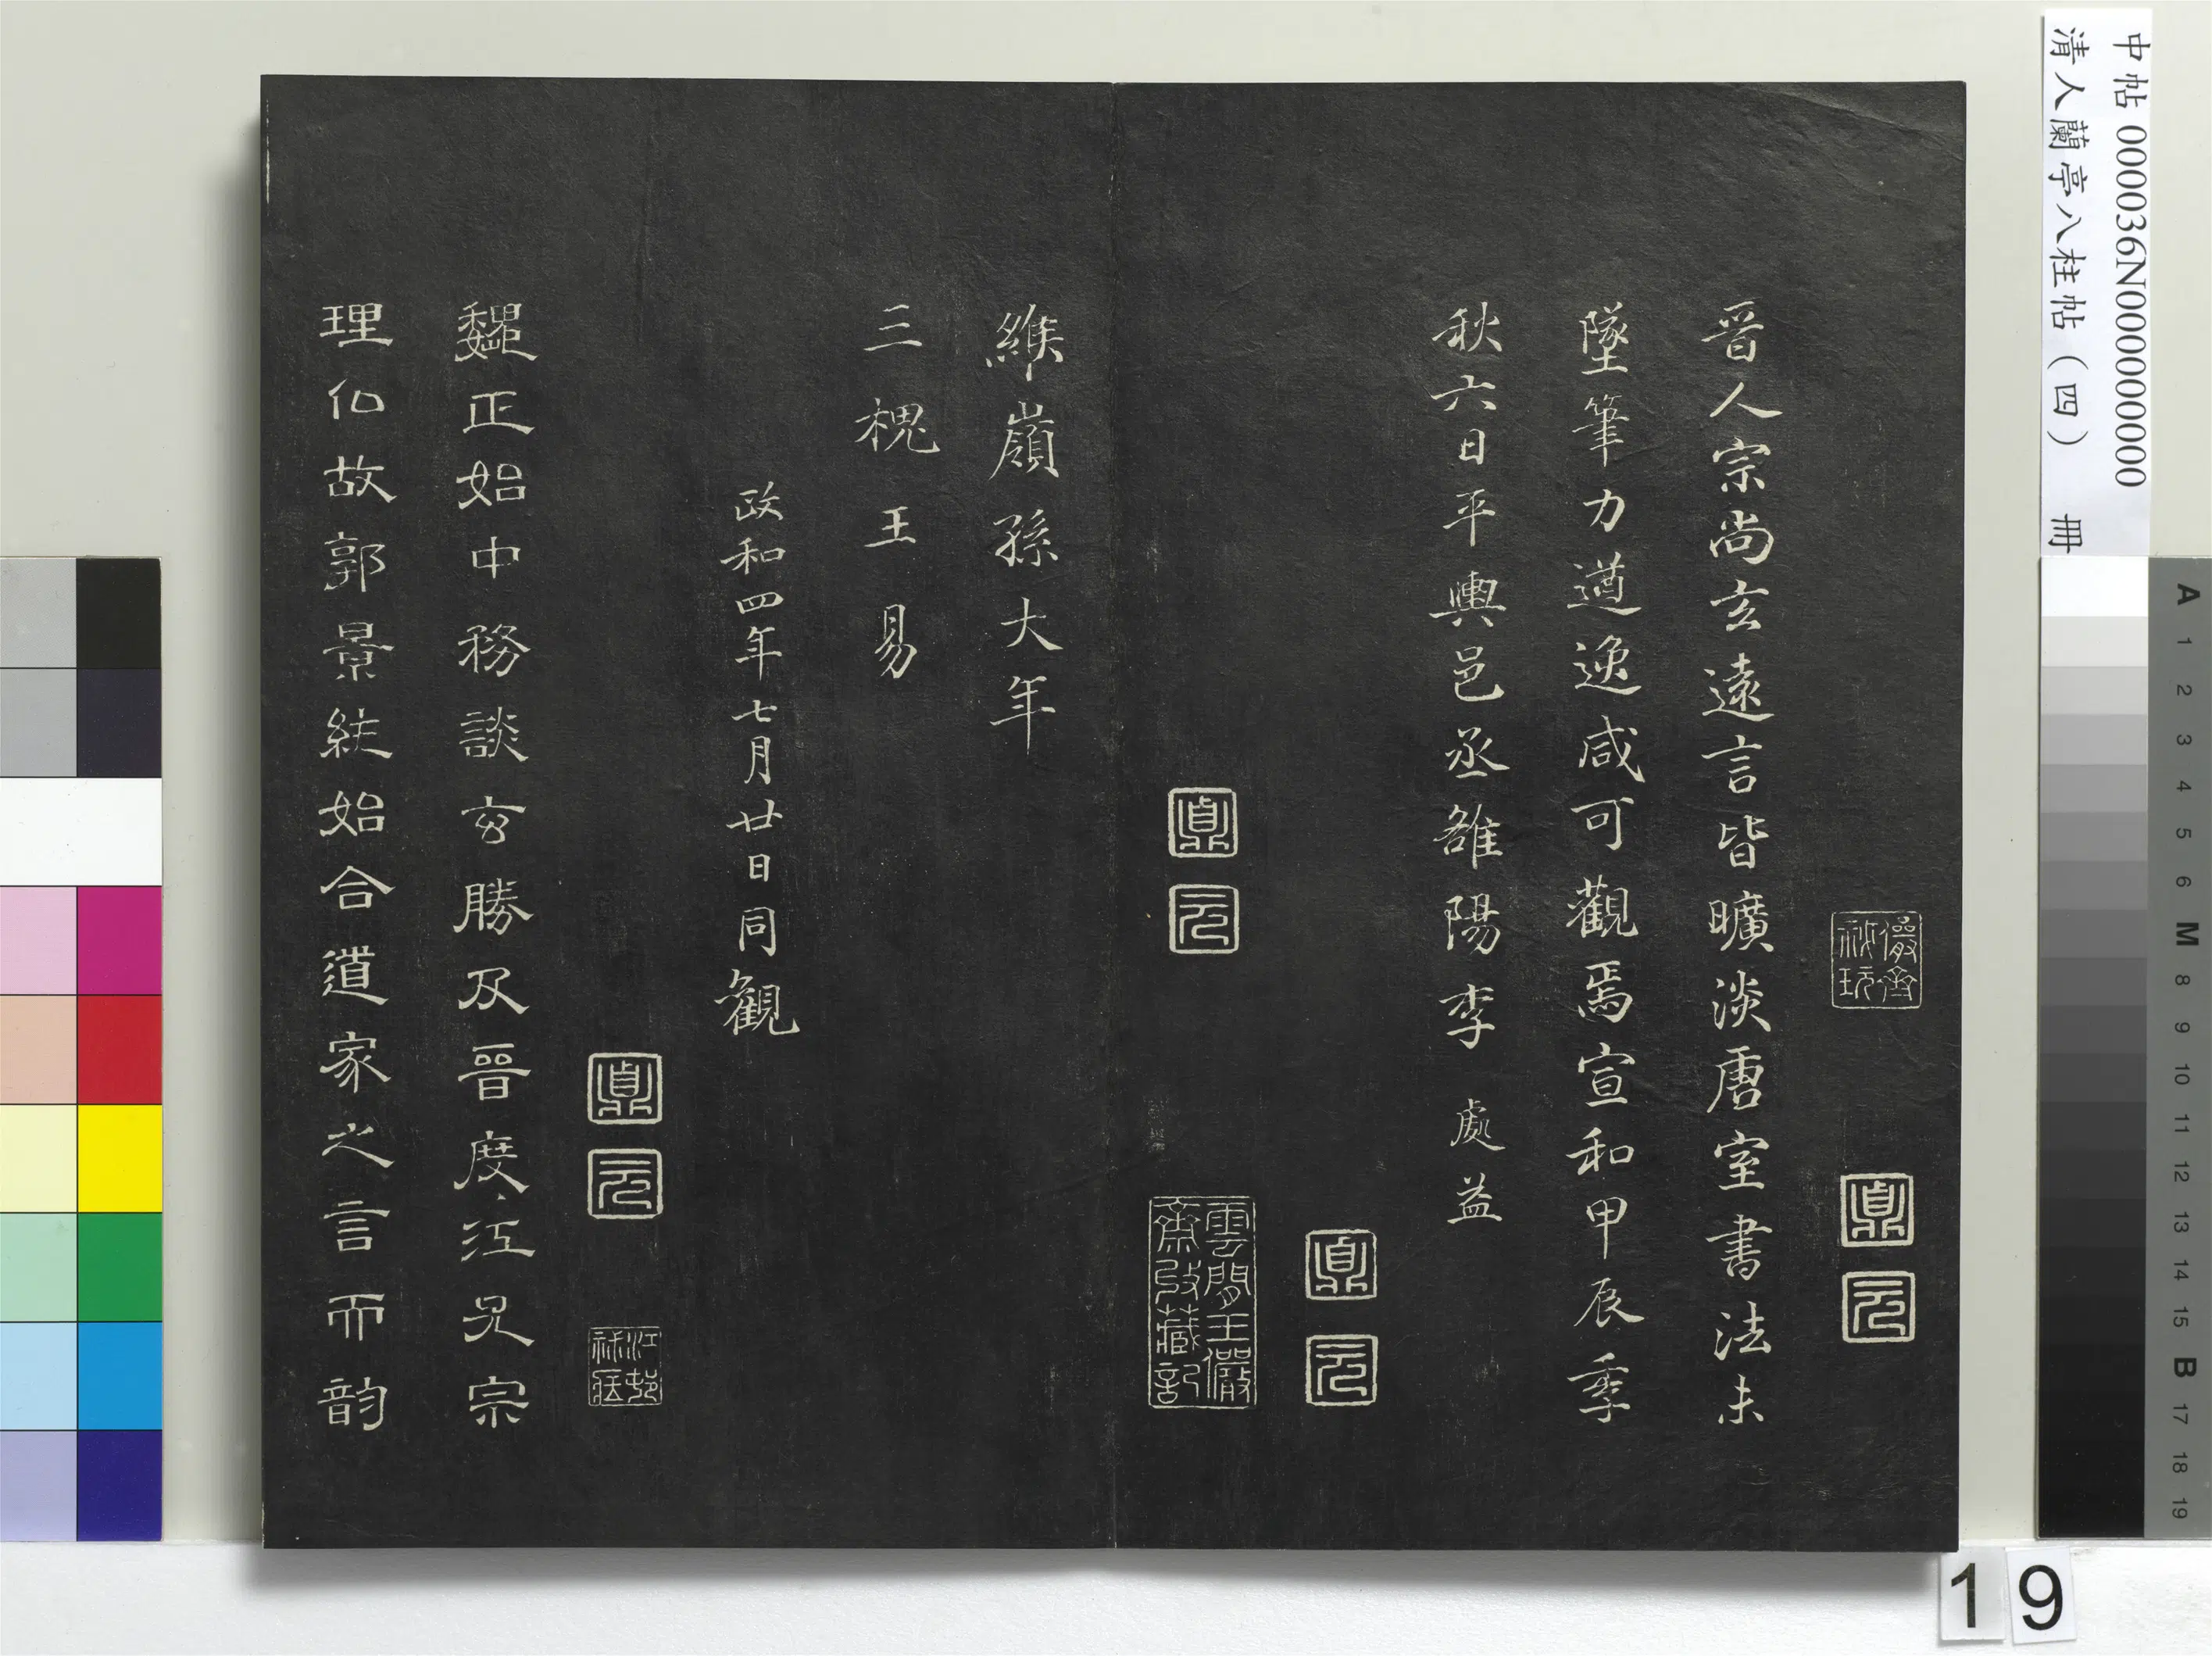 中帖 000036N000000000
清人蘭亭八柱帖（四） 冊
晉人宗尚玄遠言皆曠淡唐室書法未
墜筆力遒逸咸可觀焉宣和甲辰季
秋六日平輿邑丞雒陽李處益
緱嶺孫大年
三槐王易
政和四年七月廿日同觀
魏正始中務談玄勝及晉度江旡宗
理仏故郭景純始合道家之言而韵
儼齋
秘玩
真
元
真
元
真
元
雲間王儼
齋收藏記
真
元
江邨
秘藏
A 1 2 3 4 5 6 M 8 9 10 11 12 13 14 15 B 17 18 19
19